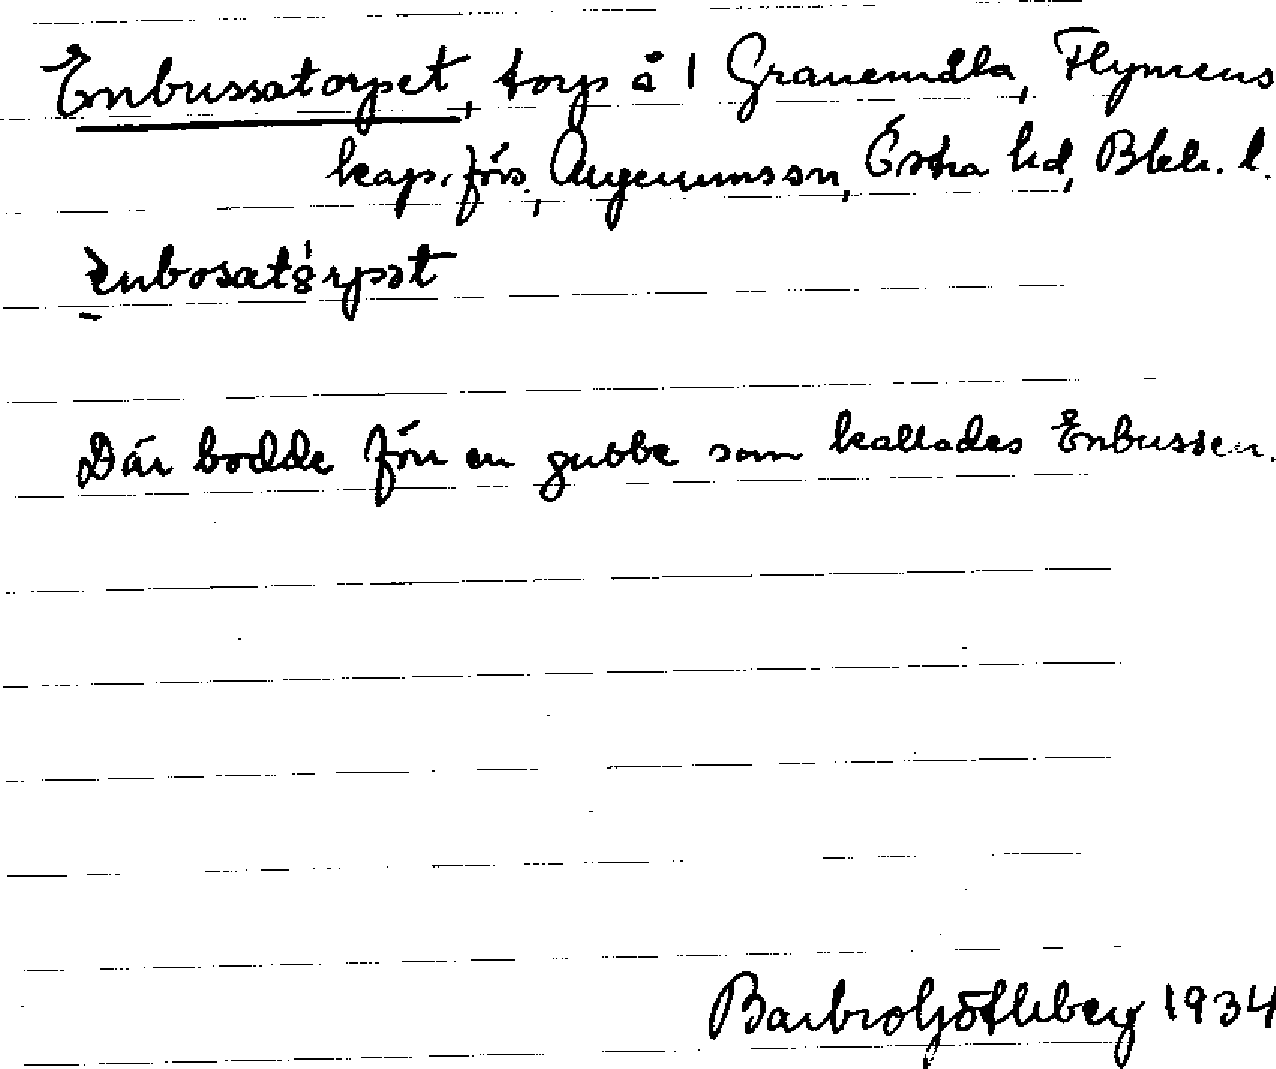 Enbussatorpet, torp å 1 Granemåla, Flymens
kap. förs., Augerumssn, Östra hd, Blek. l.
enbosatǫrpət
Där bodde förr en gubbe som kallades Enbussen.
Barbro Götlberg 1934